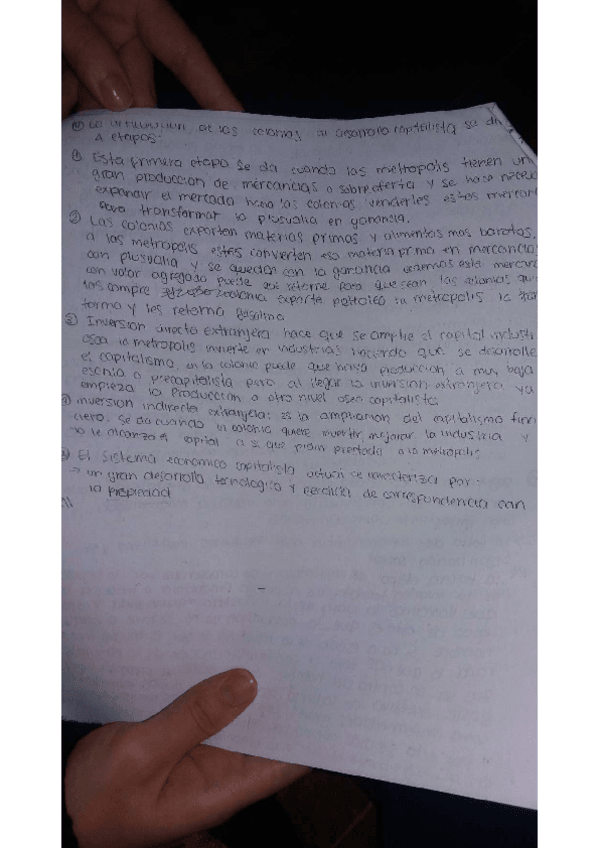 de las colonias al desarrollo capitalista se di
4 etapas.
① Esta primera etapa se da cuando las metropolis tienen un
gran produccion de mercancias o sobreoferta y se hace neces
expandir el mercado hacia las colonias venderles estas mercan
para transformar la plusvalia en ganancia.
② Las colonias exportan materias primas y alimentos mas baratos,
a las metropolis estas convierten esa materia prima en mercancia
con plusvalia y se quedan con la ganancia esta mercan
con valor agregado puede que retorne para que sean las colonias qu
las compre colonia exporta petroleo la metropolis la tran
forma y les retorna gasolina
③ Inversion directa extranjera hace que se amplie el capital industri
osea la metropolis invierte en industrias haciendo que se desarrolle
el capitalismo, en la colonia puede que haya produccion a muy baja
escala o precapitalista pero al llegar la inversion extranjera ya
empieza la produccion a otro nivel osea capitalista
inversion indirecta extranjera: es la ampliacion del capitalismo finan
ciero, se da cuando la colonia quiere invertir mejorar la industria y
no le alcanza el capital a si que piden prestado a la metropolis
El sistema economico capitalista actual se caracteriza por:
→ un gran desarrollo tecnologico y perdida de correspondencia con
la propiedad